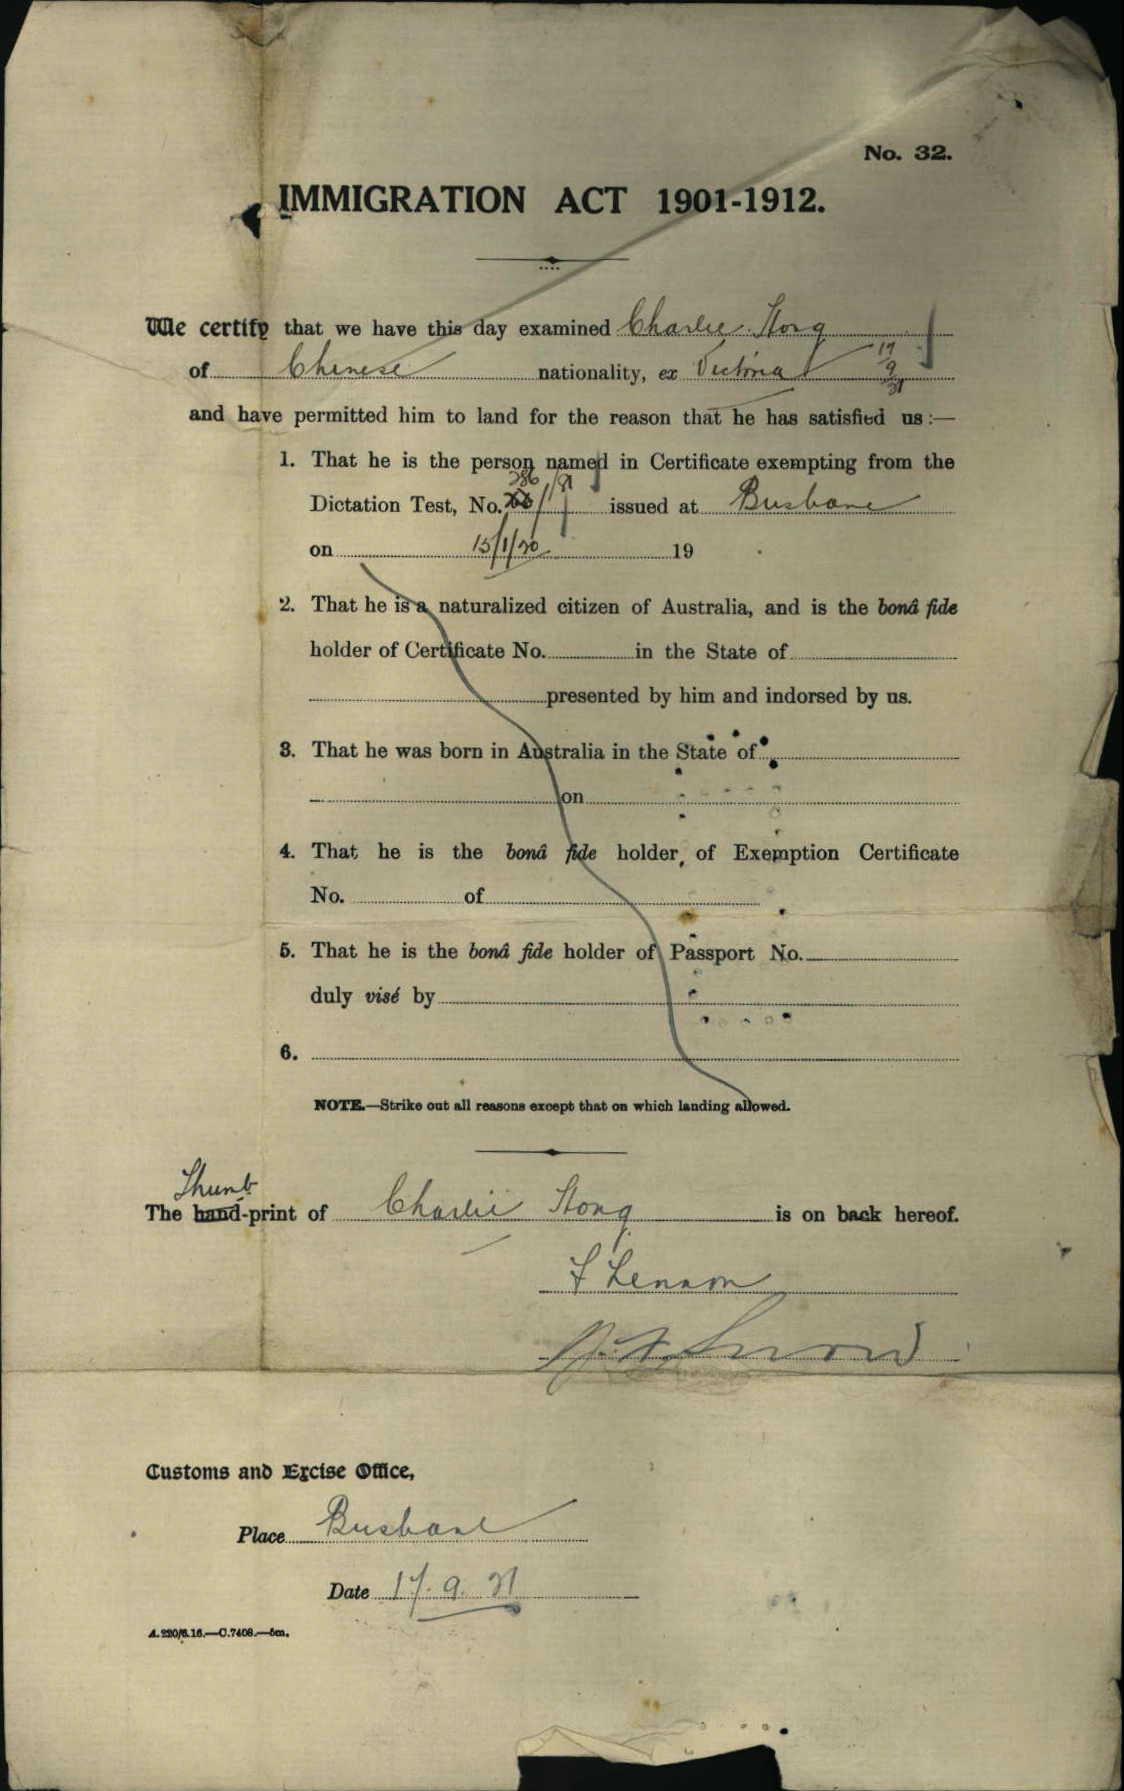 No. 32.
IMMIGRATION ACT 1901-1912.
We certify that we have this day examined Charlie Hong
of Chinese nationality, ex Victoria 17/9/21
and have permitted him to land for the reason that he has satisfied us:—
1. That he is the person named in Certificate exempting from the
Dictation Test, No. 286/81 issued at Brisbane
on 15/1/20 19
2. That he is a naturalized citizen of Australia, and is the bonâ fide
holder of Certificate No. in the State of
presented by him and indorsed by us.
3. That he was born in Australia in the State of
on
4. That he is the bonâ fide holder of Exemption Certificate
No. of
5. That he is the bonâ fide holder of Passport No.
duly visé by
6.
NOTE.—Strike out all reasons except that on which landing allowed.
Thumb
The hand-print of Charlie Hong is on back hereof.
F Lennon
Customs and Excise Office,
Place Brisbane
Date 17.9.21
A.220/6.16.—C.7408.—5m.